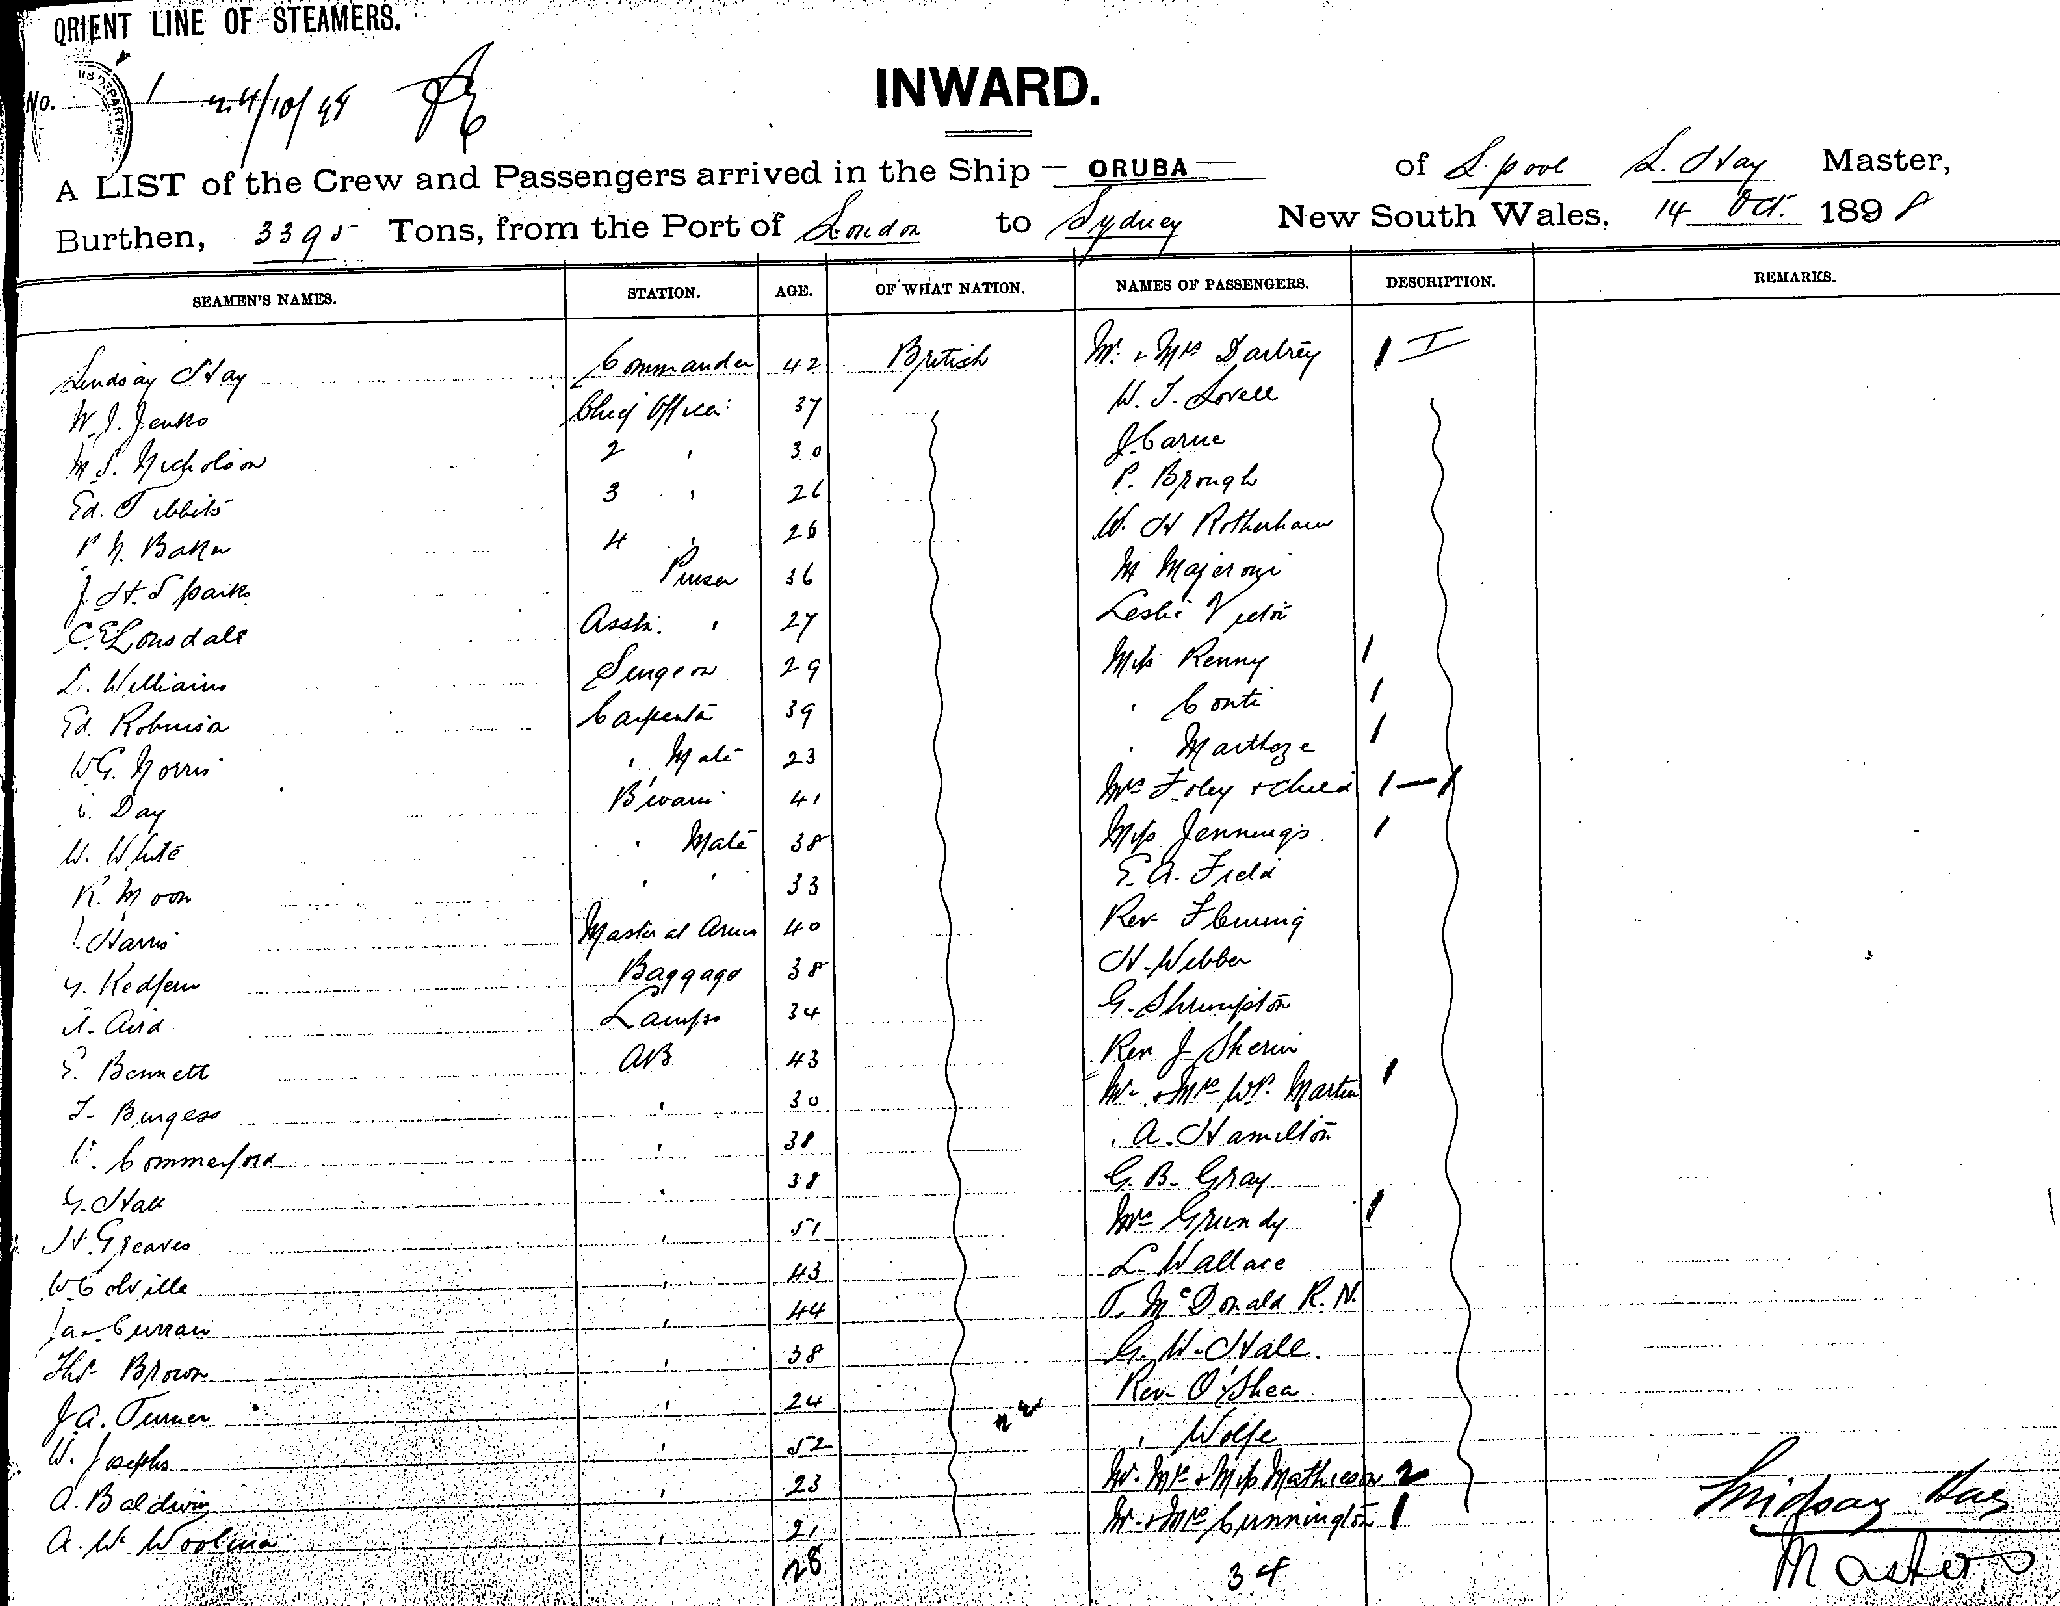 ORIENT LINE OF STEAMERS.
No. 1 24/10/98
INWARD.
A LIST of the Crew and Passengers arrived in the Ship — ORUBA — of L.pool L. Hay Master,
Burthen, 3395 Tons, from the Port of London to Sydney New South Wales, 14 Oct. 1898
SEAMEN'S NAMES. STATION. AGE. OF WHAT NATION. NAMES OF PASSENGERS. DESCRIPTION. REMARKS.
Lindsay Hay Commander 42 British Mr. + Mrs Dartrey 1 I
W. J. Jenks Chief Officer 37 W. T. Lovell
M S. Nicholson 2 " 30 J. Carne
Ed. Tibbits 3 " 26 P. Brough
P. N. Baker 4 " 26 W. H Rotherham
J. H. Sparks Purser 36 M Majeroni
C. E Lonsdale Asstn. " 27 Leslie Victor
D. Williams Surgeon 29 Miss Kenny 1
Ed. Robinson Carpenter 39 " Conti 1
W G. Norris " Mate 23 " Marthoze 1
Day 41 Mrs Foley + Child 1 — 1
W. White " Mate 38 Miss Jennings 1
R. Moon " " 33 E. A. Field
Harris Master at Arms 40 Rev Fleming
G. Redfern Baggage 38 H. Webber
A. Aird Lamps 34 G. Shrimpton
E. Bennett AB 43 Rev J Sherin
F. Burgess " 30 Mr + Mrs WP. Martin 1
Commerford " 38 " A. Hamilton
G. Hall " 38 G. B. Gray
H. Greaves " 51 Mrs Grundy 1
W Colville " 43 L. Wallace
Jas. Curran " 44 T. McDonald R. N.
Thos Brown " 38 G. W. Hall.
J. A. Turner " 24 Rev O'Shea
W. Josephs " 52 " Wolfe
A. Baldwin " 23 Mr. Mrs + Miss Mathieson 2
A. W. " 21 Mr. + Mrs Cunnington 1
28 34
Lindsay Hay
Master